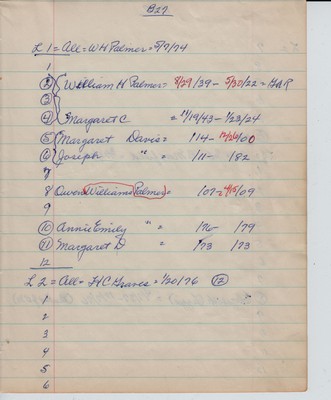 B27
L 1 = All = W H Palmer = 5/7/74
1
② William H Palmer = 8/29/39 - 5/30/22 = GAR
③
④ Margaret C = 11/19/43 - 1/23/24
⑤ Margaret Davis = 114 - 12/26/60
⑥ Joseph " = /11 - /82
7
8 Owen Williams Palmer = /07 = 4/5/09
9
⑩ Annie Emily " = /76 - /79
⑪ Margaret D = /73 /73
12
L 2 = All = H C Graves = 1/20/76 ⑫
1
2
3
4
5
6